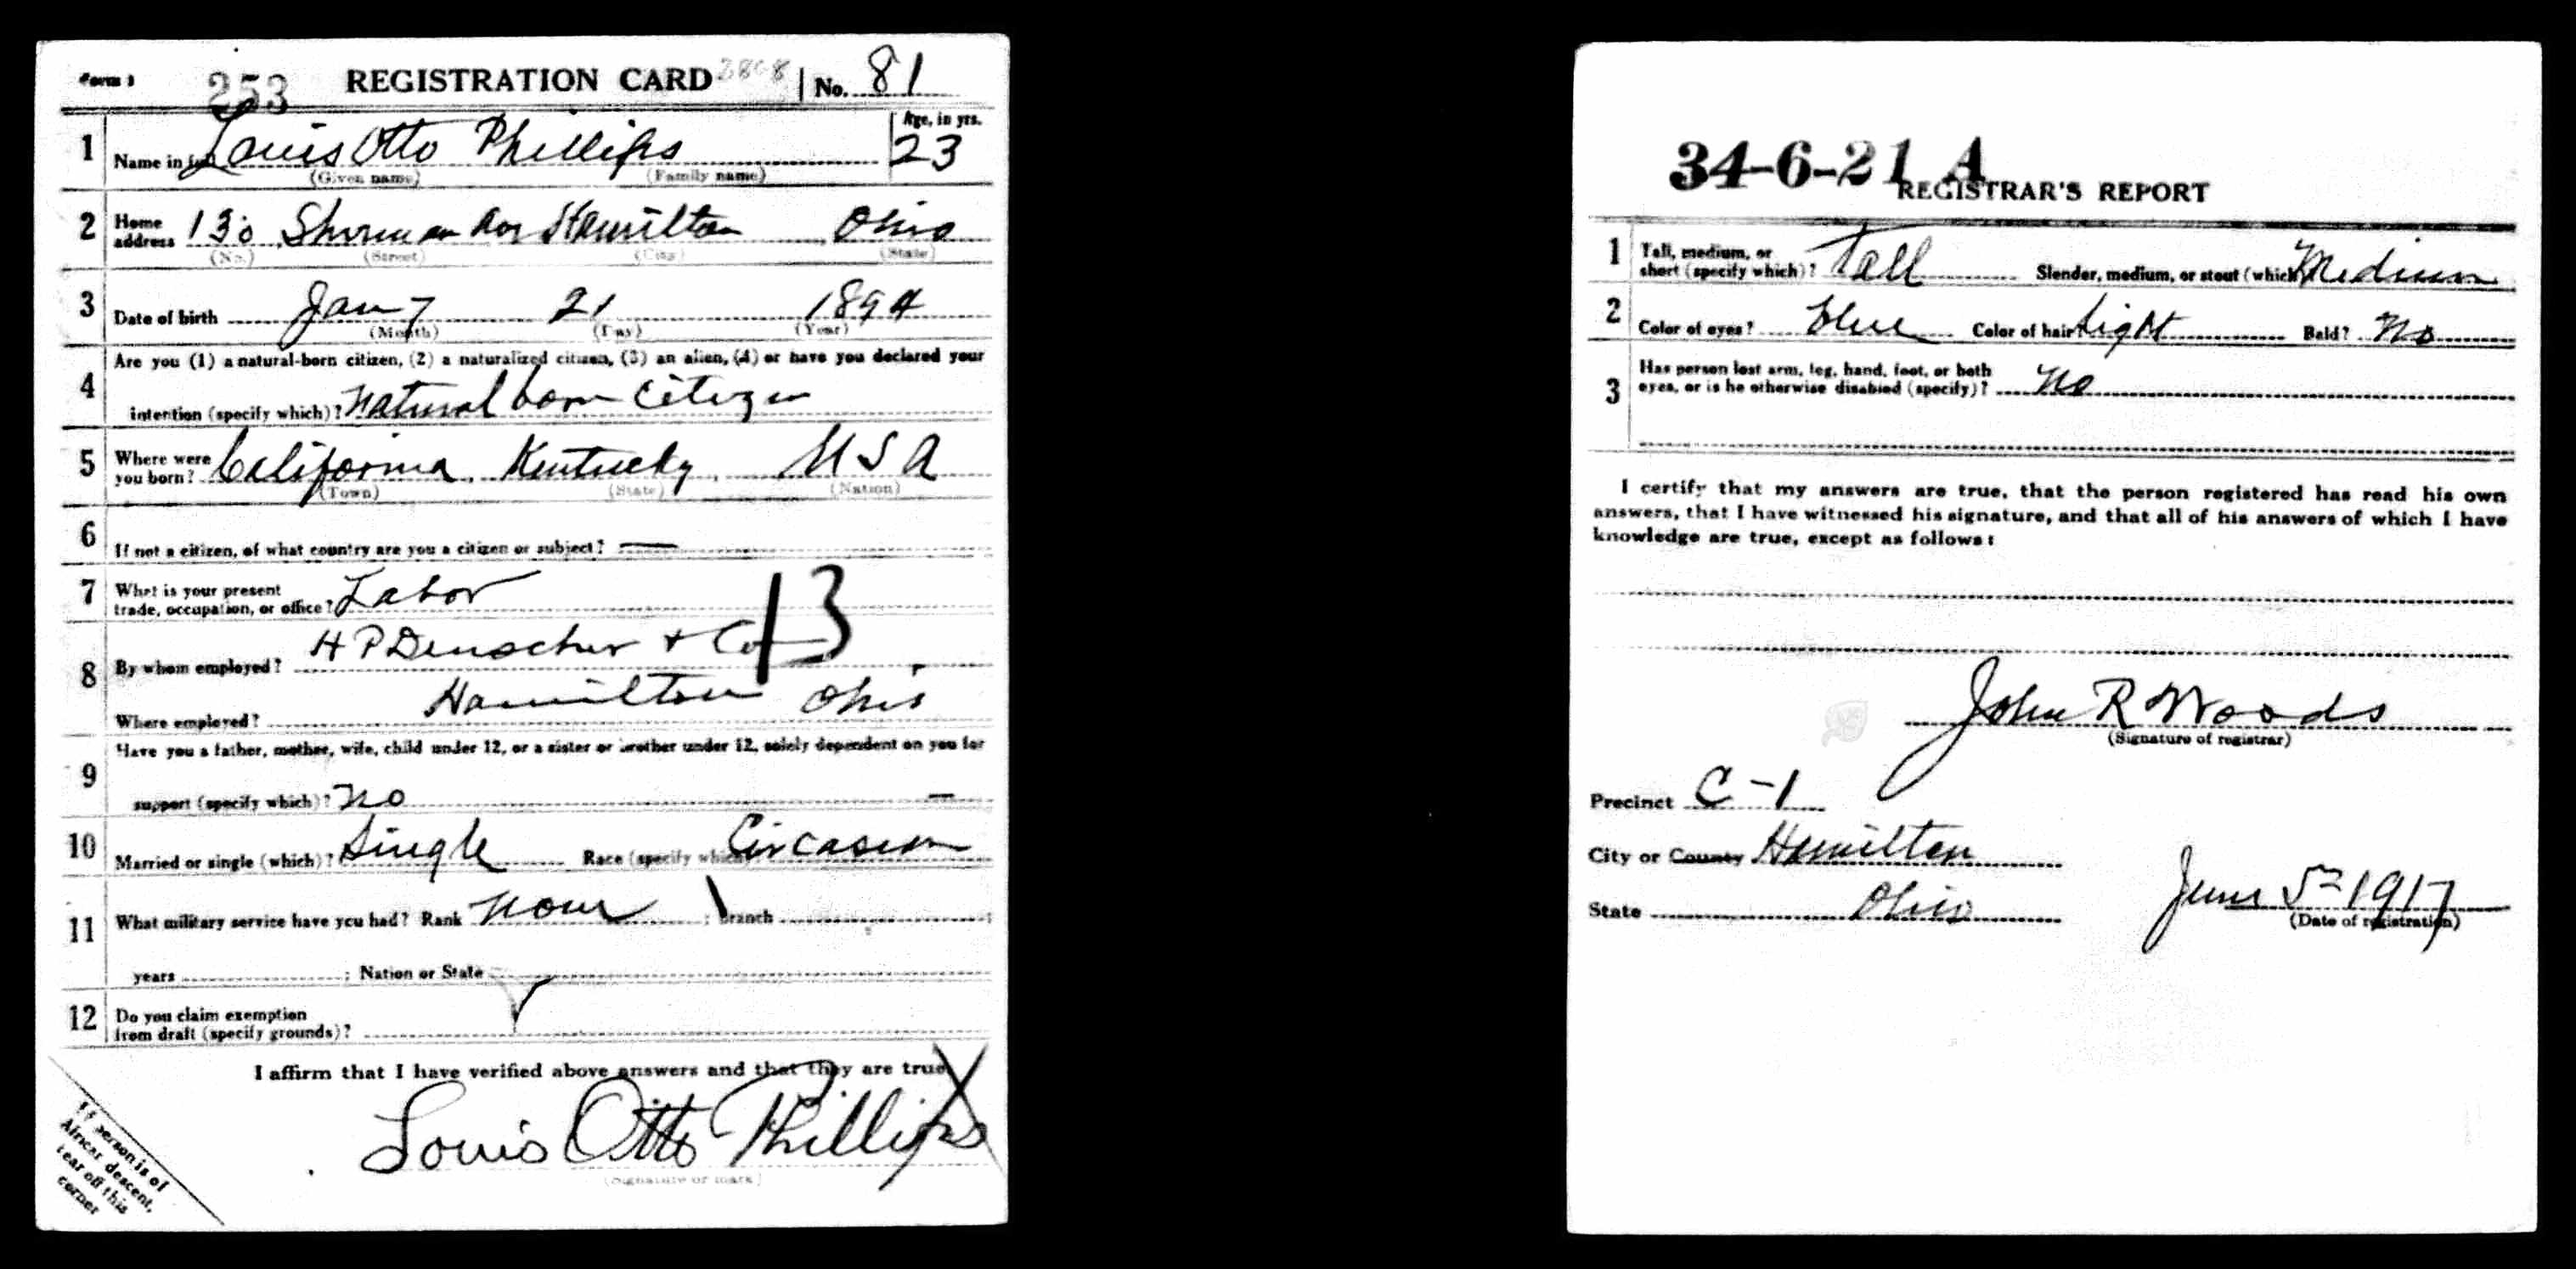 Form 1 253 REGISTRATION CARD 3808 No. 81
1 Name in full Louis Otto Phillips Age, in yrs. 23
(Given name) (Family name)
2 Home address 130 Sherman Ave Hamilton Ohio
(No.) (Street) (City) (State)
3 Date of birth Jany 21 1894
(Month) (Day) (Year)
4 Are you (1) a natural-born citizen, (2) a naturalized citizen, (3) an alien, (4) or have you declared your
intention (specify which)? Natural born Citizen
5 Where were you born? California, Kentucky, U S A
(Town) (State) (Nation)
6 If not a citizen, of what country are you a citizen or subject? —
7 What is your present trade, occupation, or office? Labor
13
8 By whom employed? H P Deuscher + Co
Where employed? Hamilton Ohio
9 Have you a father, mother, wife, child under 12, or a sister or brother under 12, solely dependent on you for
support (specify which)? No —
10 Married or single (which)? Single Race (specify which)
11 What military service have you had? Rank None ; branch ;
years ; Nation or State
12 Do you claim exemption from draft (specify grounds)?
I affirm that I have verified above answers and that they are true
Louis Otto Phillips
(Signature or mark)
If person is of
African descent,
tear off this
corner
34-6-21 A
REGISTRAR'S REPORT
1 Tall, medium, or short (specify which)? Tall Slender, medium, or stout (which) Medium
2 Color of eyes? Blue Color of hair Light Bald? No
3 Has person lost arm, leg, hand, foot, or both eyes, or is he otherwise disabled (specify)? No
I certify that my answers are true, that the person registered has read his own
answers, that I have witnessed his signature, and that all of his answers of which I have
knowledge are true, except as follows:
John R Woods
(Signature of registrar)
Precinct C-1
City or County Hamilton
State Ohio
June 5 1917
(Date of registration)